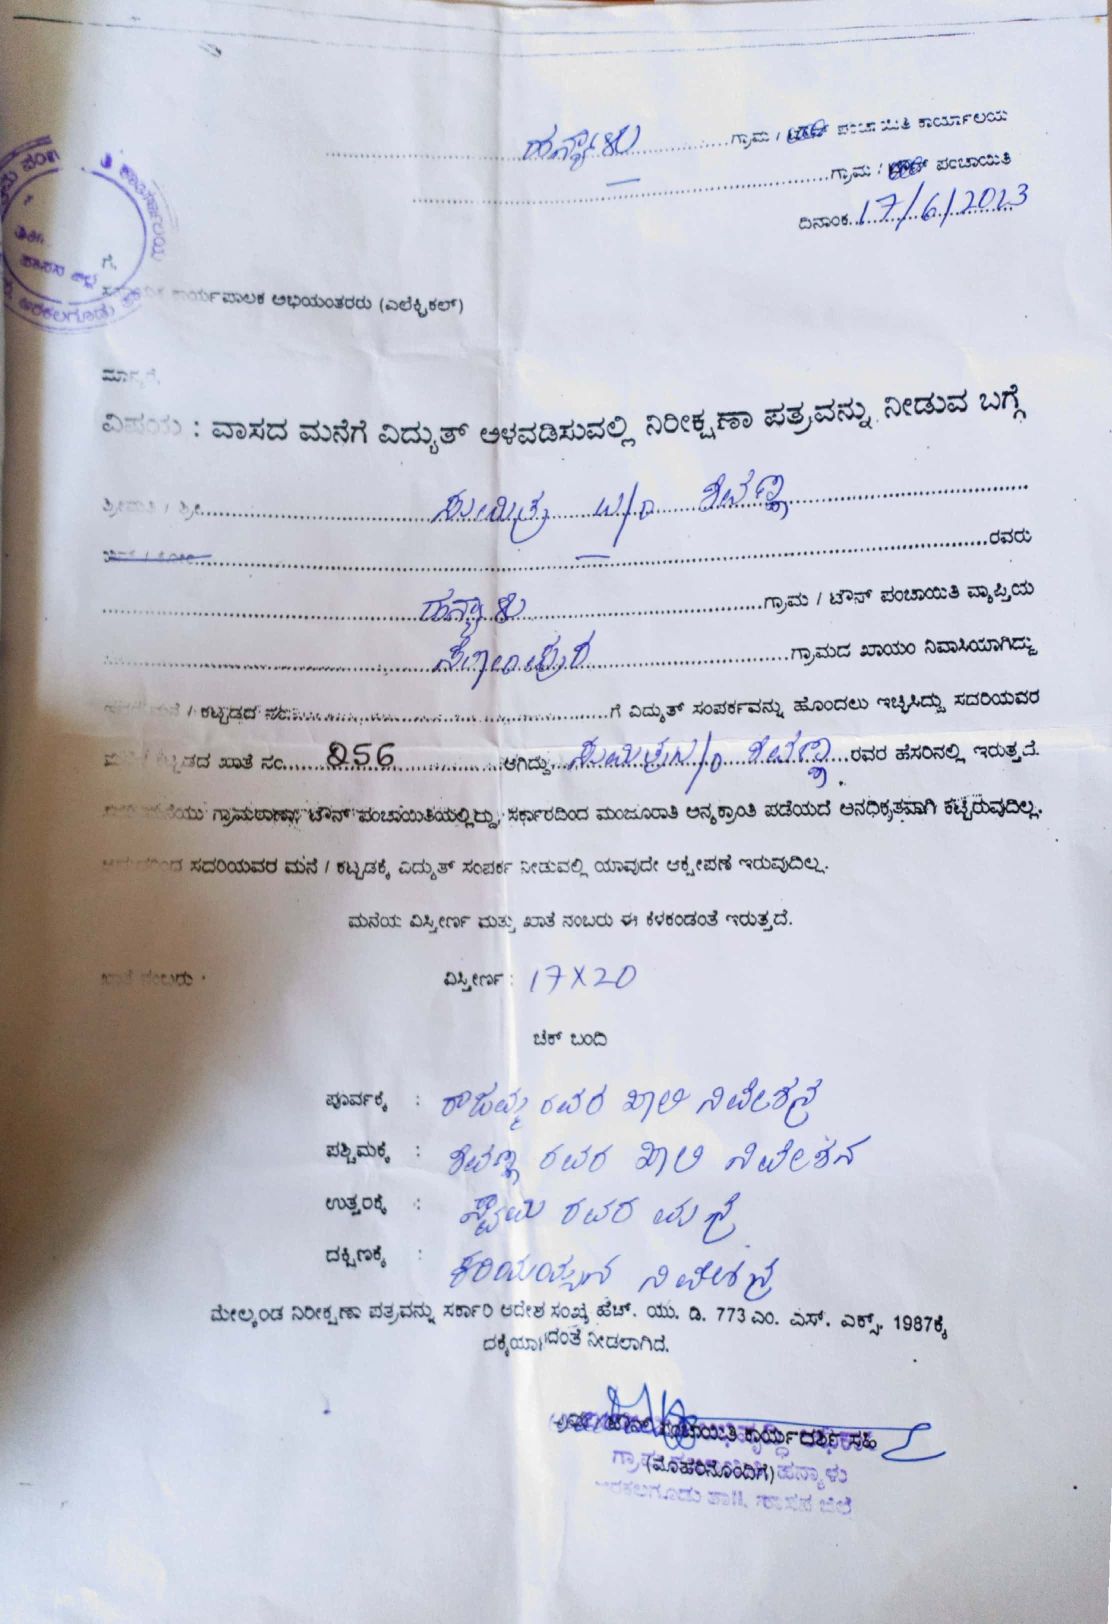 ಹನ್ಯಾಳು ಗ್ರಾಮ / ಟೌನ್ ಪಂಚಾಯಿತಿ ಕಾರ್ಯಾಲಯ
ಗ್ರಾಮ / ಟೌನ್ ಪಂಚಾಯಿತಿ
ದಿನಾಂಕ 17/6/2023
ಗೆ,
ಕಾರ್ಯಪಾಲಕ ಅಭಿಯಂತರರು (ಎಲೆಕ್ಟ್ರಿಕಲ್)
ಮಾನ್ಯರೆ,
ವಿಷಯ : ವಾಸದ ಮನೆಗೆ ವಿದ್ಯುತ್ ಅಳವಡಿಸುವಲ್ಲಿ ನಿರೀಕ್ಷಣಾ ಪತ್ರವನ್ನು ನೀಡುವ ಬಗ್ಗೆ
ಶ್ರೀಮತಿ / ಶ್ರೀ ಸುಮಿತ್ರ w/o ಶಿವಣ್ಣ
ರವರು
ಹನ್ಯಾಳು ಗ್ರಾಮ / ಟೌನ್ ಪಂಚಾಯಿತಿ ವ್ಯಾಪ್ತಿಯ
ಗ್ರಾಮದ ಖಾಯಂ ನಿವಾಸಿಯಾಗಿದ್ದು
/ ಕಟ್ಟಡದ ನಂ. ಗೆ ವಿದ್ಯುತ್ ಸಂಪರ್ಕವನ್ನು ಹೊಂದಲು ಇಚ್ಛಿಸಿದ್ದು ಸದರಿಯವರ
ಮನೆ / ಕಟ್ಟಡದ ಖಾತೆ ನಂ. 256 ಆಗಿದ್ದು ಸುಮಿತ್ರ w/o ಶಿವಣ್ಣ ರವರ ಹೆಸರಿನಲ್ಲಿ ಇರುತ್ತದೆ.
ಮನೆಯು ಗ್ರಾಮಠಾಣಾ ಟೌನ್ ಪಂಚಾಯಿತಿಯಲ್ಲಿದ್ದು, ಸರ್ಕಾರದಿಂದ ಮಂಜೂರಾತಿ ಅನ್ಯಕ್ರಾಂತಿ ಪಡೆಯದೆ ಅನಧಿಕೃತವಾಗಿ ಕಟ್ಟಿರುವುದಿಲ್ಲ.
ಸದರಿಯವರ ಮನೆ / ಕಟ್ಟಡಕ್ಕೆ ವಿದ್ಯುತ್ ಸಂಪರ್ಕ ನೀಡುವಲ್ಲಿ ಯಾವುದೇ ಆಕ್ಷೇಪಣೆ ಇರುವುದಿಲ್ಲ.
ಮನೆಯ ವಿಸ್ತೀರ್ಣ ಮತ್ತು ಖಾತೆ ನಂಬರು ಈ ಕೆಳಕಂಡಂತೆ ಇರುತ್ತದೆ.
ಖಾತೆ ನಂಬರು : ವಿಸ್ತೀರ್ಣ : 17X20
ಚಕ್ ಬಂದಿ
ಪೂರ್ವಕ್ಕೆ : ರಾಜಮ್ಮ ರವರ ಖಾಲಿ ನಿವೇಶನ
ಪಶ್ಚಿಮಕ್ಕೆ : ಶಿವಣ್ಣ ರವರ ಖಾಲಿ ನಿವೇಶನ
ಉತ್ತರಕ್ಕೆ : ಸ್ವಾಮಿ ರವರ ಮನೆ
ದಕ್ಷಿಣಕ್ಕೆ : ಕರಿಯಯ್ಯನ ನಿವೇಶನ
ಮೇಲ್ಕಂಡ ನಿರೀಕ್ಷಣಾ ಪತ್ರವನ್ನು ಸರ್ಕಾರಿ ಆದೇಶ ಸಂಖ್ಯೆ ಹೆಚ್. ಯು. ಡಿ. 773 ಎಂ. ಎಸ್. ಎಕ್ಸ್. 1987ಕ್ಕೆ
ನೀಡಲಾಗಿದೆ.
ಟೌನ್ ಪಂಚಾಯಿತಿ ಕಾರ್ಯದರ್ಶಿ ಸಹಿ
(ಮೊಹರಿನೊಂದಿಗೆ)
ಹನ್ಯಾಳು
ಅರಕಲಗೂಡು ತಾ||, ಹಾಸನ ಜಿಲ್ಲೆ